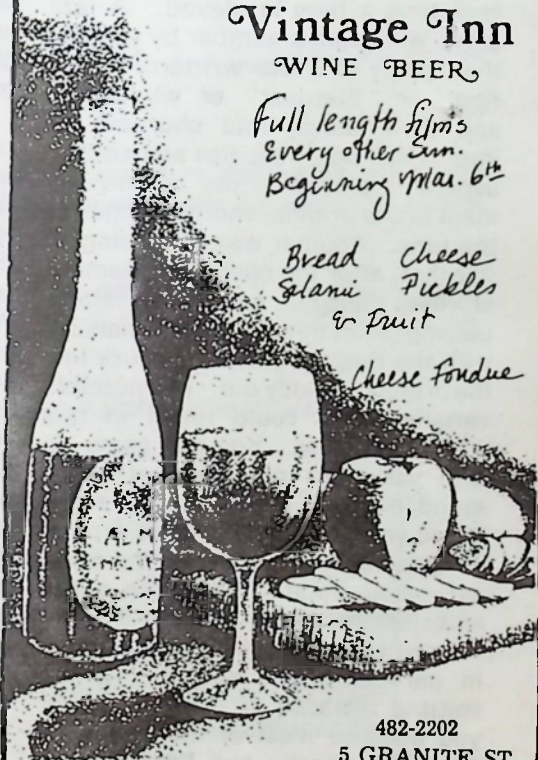 Vintage Inn
WINE BEER
Full length films
Every other Sun.
Beginning Mar. 6th
Bread Cheese
Salami Pickles
& Fruit
Cheese Fondue
482-2202
5 GRANITE ST